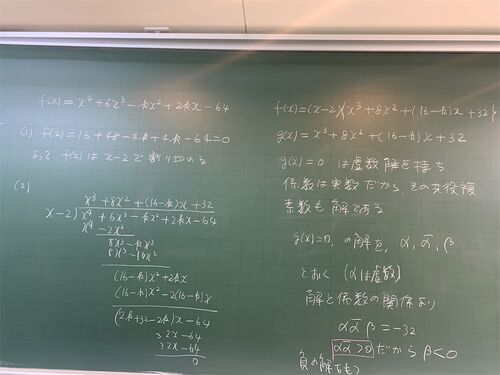 f(x) = x⁴ + 6x³ - kx² + 2kx - 64
(1) f(2) = 16 + 48 - 4k + 4k - 64 = 0
よって f(x) は x-2 で割り切れる
(2)
x³ + 8x² + (16-k)x + 32
x-2)x⁴ + 6x³ - kx² + 2kx - 64
x⁴ - 2x³
8x³ - kx²
8x³ - 16x²
(16-k)x² + 2kx
(16-k)x² - 2(16-k)x
(2k+32-2k)x - 64
32x - 64
32x - 64
0
f(x) = (x-2){x³ + 8x² + (16-k)x + 32}
g(x) = x³ + 8x² + (16-k)x + 32
g(x) = 0 は虚数解を持ち
係数は実数だから、その共役複
素数も解である
g(x) = 0, の解を, α, ᾱ, β
とおく (αは虚数)
解と係数の関係より
αᾱβ = -32
αᾱ > 0 だから β < 0
負の解をもつ